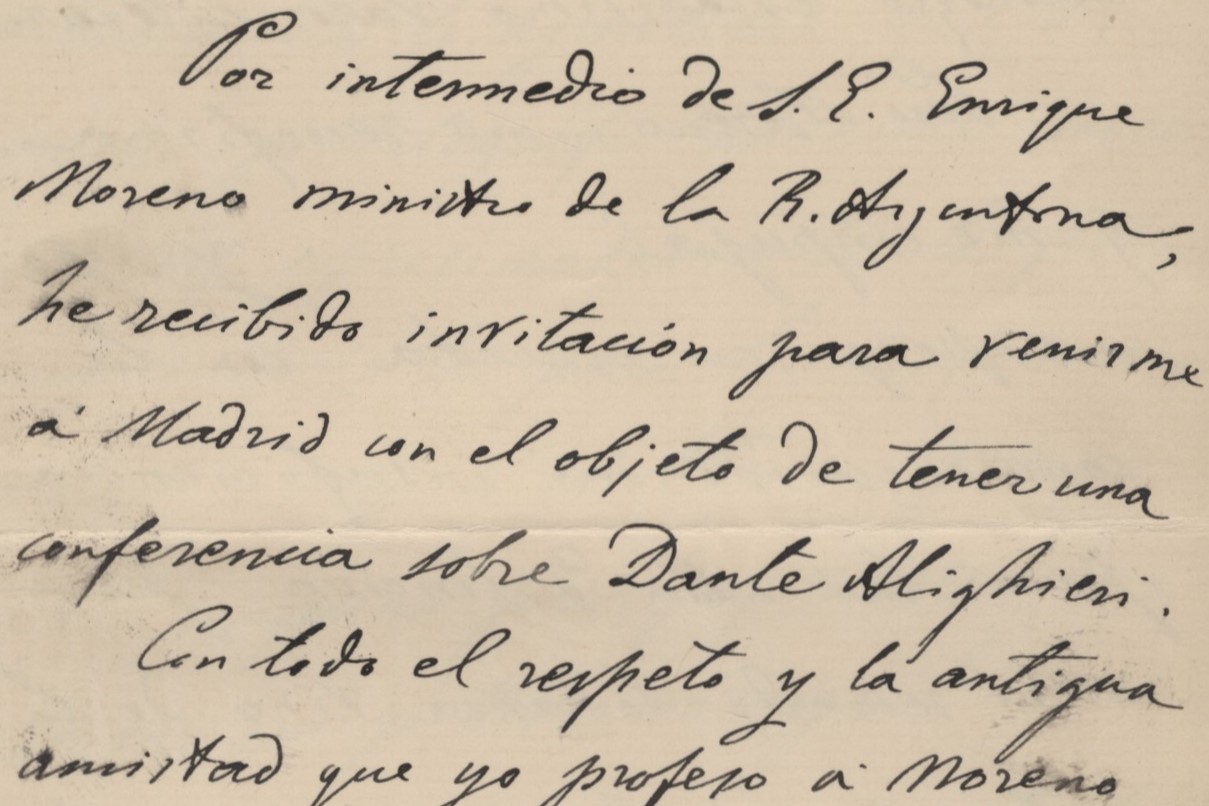 Por intermedio de S. E. Enrique
Moreno ministro de la R. Argentina,
he recibido invitación para venirme
á Madrid con el objeto de tener una
conferencia sobre Dante Alighieri.
Con todo el respeto y la antigua
amistad que yo profeso á Moreno